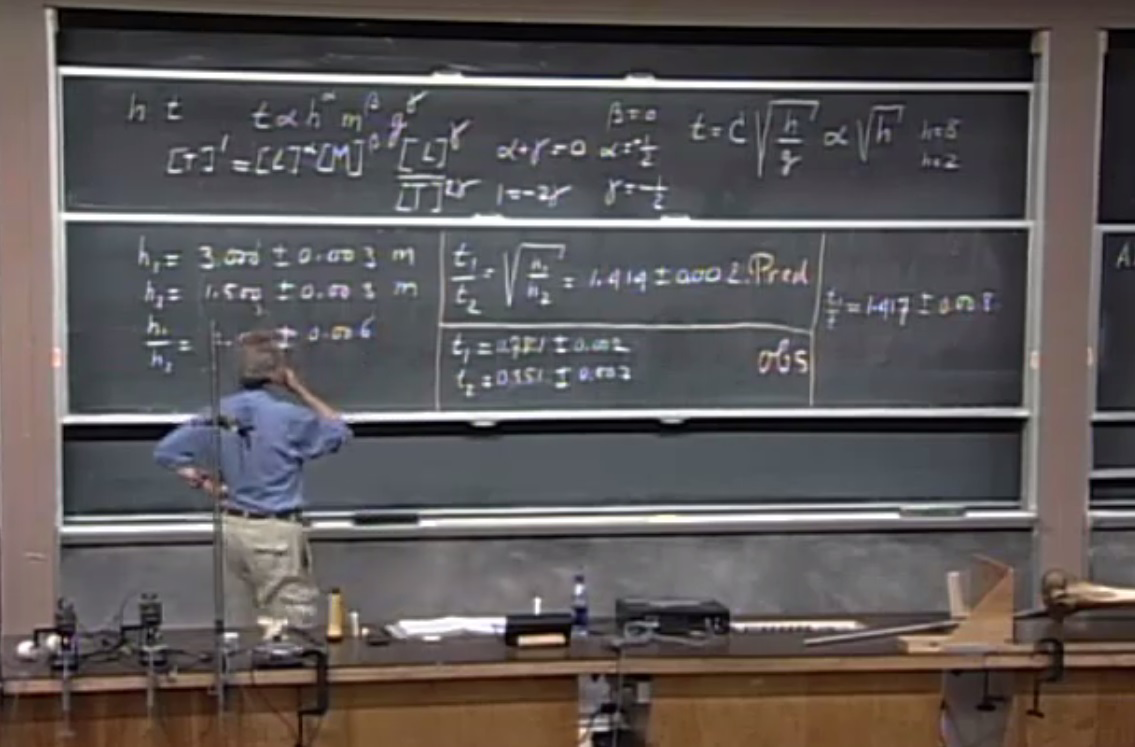 h t
t ∝ h^α m^β g^γ
[T]^1 = [L]^α [M]^β [L]^γ / [T]^2γ
α+γ=0
1=-2γ
β=0
α=+1/2
γ=-1/2
t = C √(h/g) ∝ √h
h=3
h=2
h₁ = 3.000 ± 0.003 m
h₂ = 1.500 ± 0.003 m
h₁/h₂ = ± 0.006
t₁/t₂ = √(h₁/h₂) = 1.414 ± 0.002 Pred
t₁ = 0.781 ± 0.002
t₂ = 0.551 ± 0.002
obs
t₁/t₂ = 1.417 ± 0.008
A.